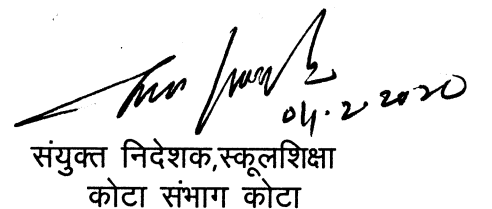 04.2.2020
संयुक्त निदेशक,स्कूलशिक्षा
कोटा संभाग कोटा